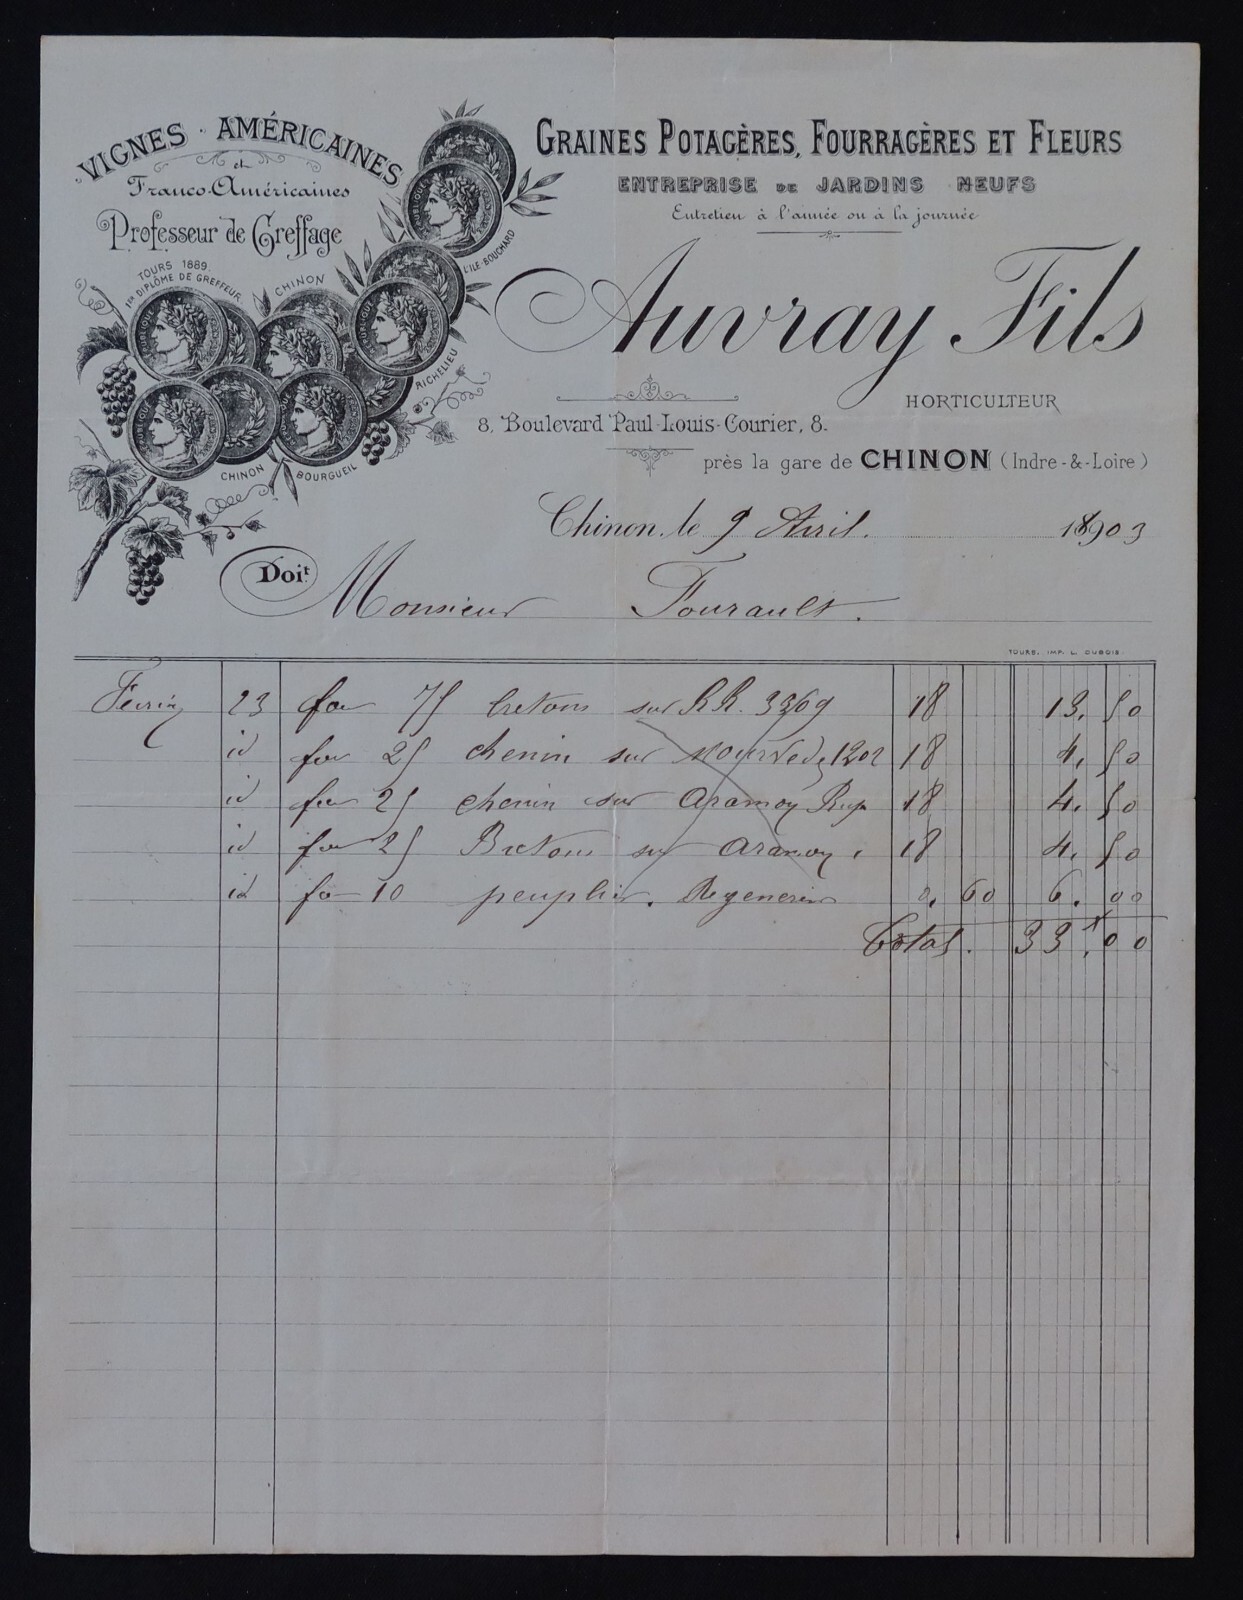 VIGNES AMÉRICAINES
et
Franco-Américaines
Professeur de Greffage
TOURS 1889.
1ER DIPLÔME DE GREFFEUR.
CHINON
L'ILE-BOUCHARD
RICHELIEU
CHINON
BOURGUEIL
GRAINES POTAGÈRES, FOURRAGÈRES ET FLEURS
ENTREPRISE DE JARDINS NEUFS
Entretien à l'année ou à la journée
Auvray Fils
HORTICULTEUR
8, Boulevard Paul-Louis-Courier, 8.
près la gare de CHINON (Indre-&-Loire)
Chinon, le 9 Avril. 1903
Doit Monsieur Fourault.
TOURS, IMP. L. DUBOIS.
23 75 bretons sur RR. 3369 18 13. 50
id 25 chenin sur 1202 18 4. 50
id 25 chenin sur aramon Rup 18 4. 50
id 25 Bretons sur aramon 18 4. 50
id 10 peuplier Regenerir 0. 60 6. 00
Total. 33f.00